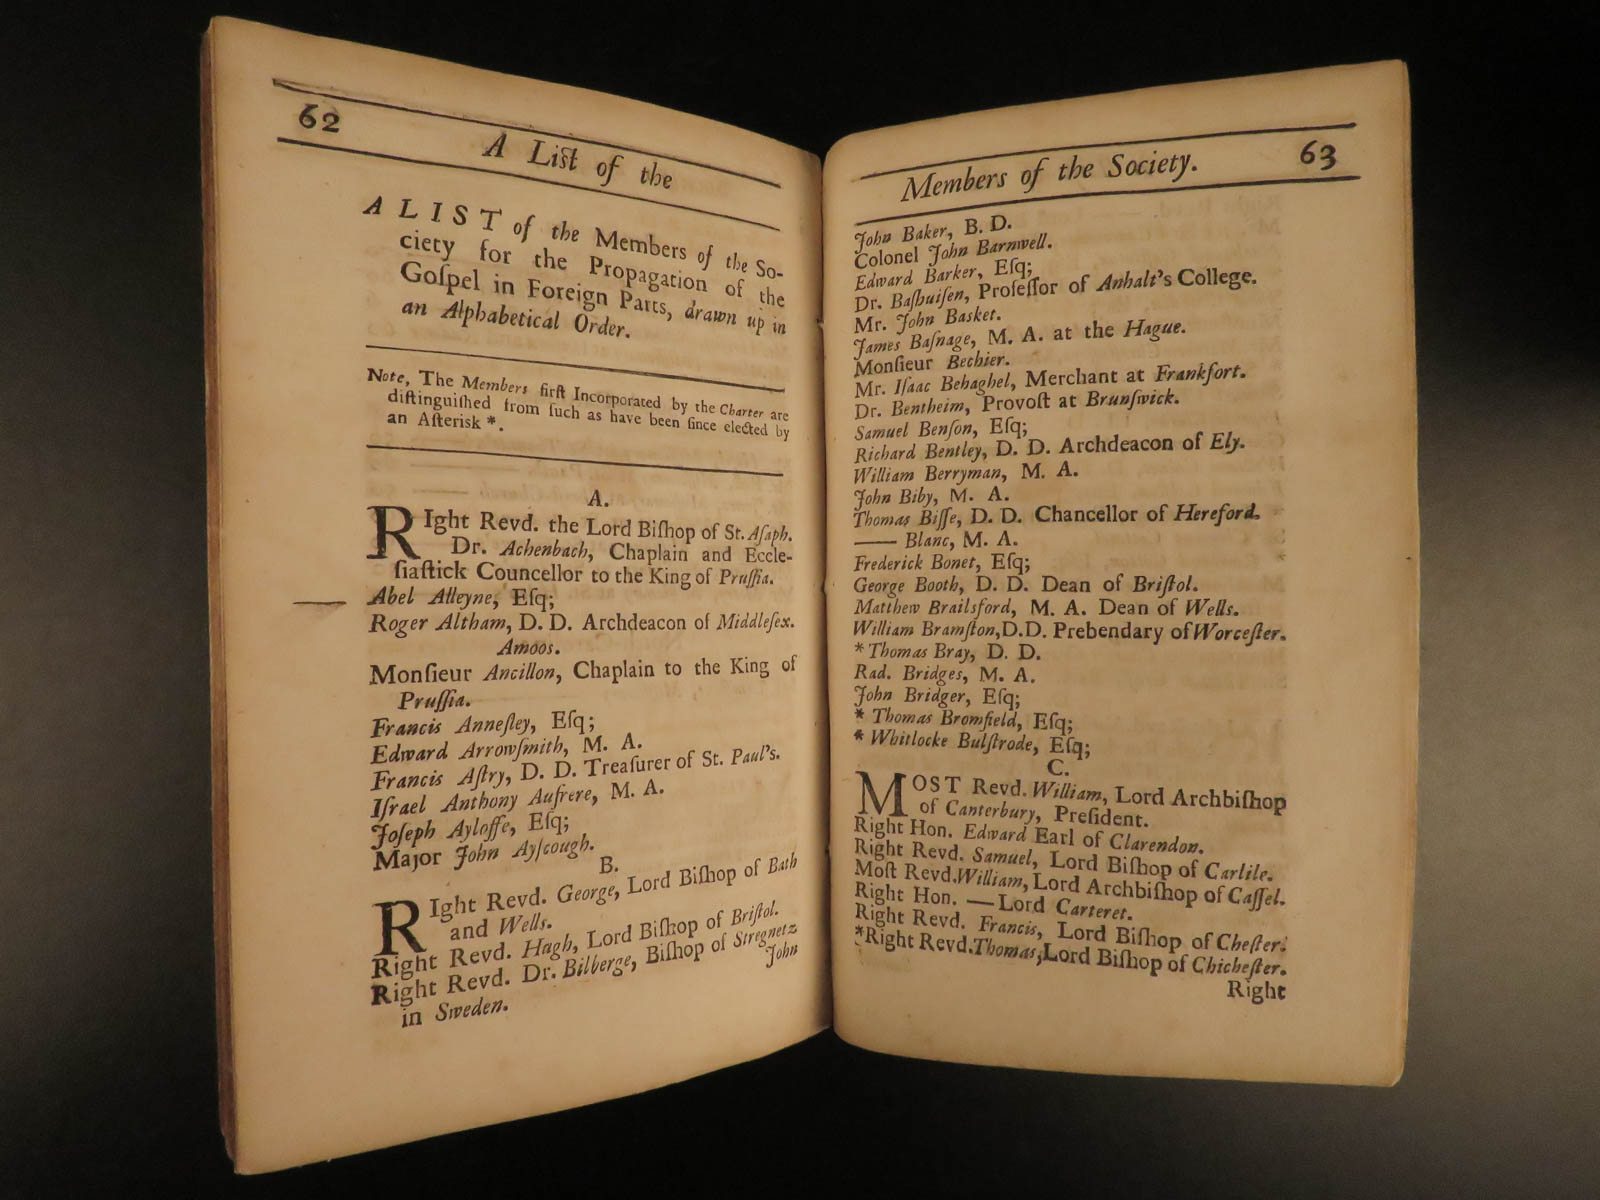 62
A List of the
A LIST of the Members of the So-
ciety for the Propagation of the
Goſpel in Foreign Parts, drawn up in
an Alphabetical Order.
Note, The Members firſt Incorporated by the Charter are
diſtinguiſhed from ſuch as have been ſince elected by
an Aſterisk *.
A.
RIght Revd. the Lord Biſhop of St. Aſaph.
Dr. Achenbach, Chaplain and Eccle-
ſiaſtick Councellor to the King of Pruſſia.
Abel Alleyne, Eſq;
Roger Altham, D. D. Archdeacon of Middleſex.
Amoos.
Monſieur Ancillon, Chaplain to the King of
Pruſſia.
Francis Anneſley, Eſq;
Edward Arrowſmith, M. A.
Francis Aſtry, D. D. Treaſurer of St. Paul's.
Iſrael Anthony Aufrere, M. A.
Joſeph Ayloffe, Eſq;
Major John Ayſcough.
B.
RIght Revd. George, Lord Biſhop of Bath
and Wells.
Right Revd. Hugh, Lord Biſhop of Briſtol.
Right Revd. Dr. Bilberge, Biſhop of Stregnetz
in Sweden.
John
Members of the Society.
63
John Baker, B. D.
Colonel John Barnwell.
Edward Barker, Eſq;
Dr. Baſhuiſen, Profeſſor of Anhalt's College.
Mr. John Basket.
James Baſnage, M. A. at the Hague.
Monſieur Bechier.
Mr. Iſaac Behaghel, Merchant at Frankfort.
Dr. Bentheim, Provoſt at Brunſwick.
Samuel Benſon, Eſq;
Richard Bentley, D. D. Archdeacon of Ely.
William Berryman, M. A.
John Biby, M. A.
Thomas Biſſe, D. D. Chancellor of Hereford.
—— Blanc, M. A.
Frederick Bonet, Eſq;
George Booth, D. D. Dean of Briſtol.
Matthew Brailsford, M. A. Dean of Wells.
William Bramſton, D.D. Prebendary of Worceſter.
* Thomas Bray, D. D.
Rad. Bridges, M. A.
John Bridger, Eſq;
* Thomas Bromfield, Eſq;
* Whitlocke Bulſtrode, Eſq;
C.
MOST Revd. William, Lord Archbiſhop
of Canterbury, Preſident.
Right Hon. Edward Earl of Clarendon.
Right Revd. Samuel, Lord Biſhop of Carlile.
Moſt Revd. William, Lord Archbiſhop of Caſſel.
Right Hon. — Lord Carteret.
Right Revd. Francis, Lord Biſhop of Cheſter.
*Right Revd. Thomas, Lord Biſhop of Chicheſter.
Right